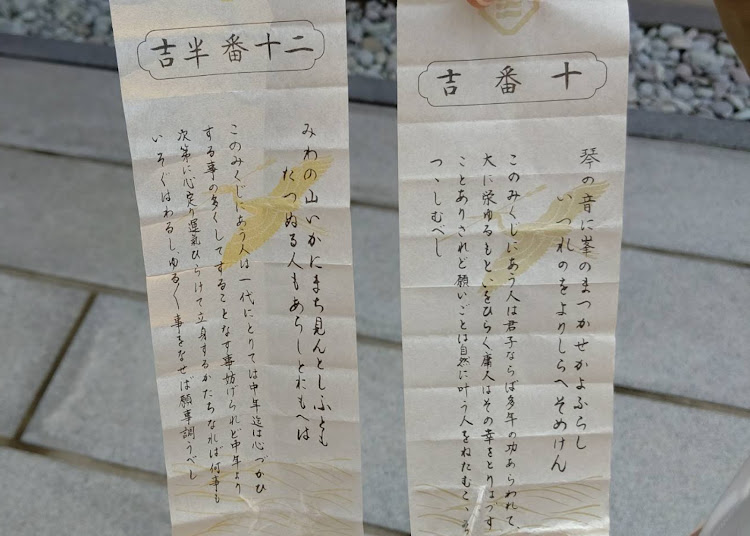 十番吉
琴の音に峯のまつかせかよふらし
いつれのをよりしらへそめけん
このみくじにあう人は君子ならば多年の功あらわれて、
大に栄ゆるもといをひらく庸人はその幸をとりはづす
ことありされど願いごとは自然に叶う人をねたむこゝろ
つゝしむべし
二十番半吉
みわの山いかにまち見んとしふとも
たつぬる人もあらしとおもへは
このみくじにあう人は一代にとりては中年迄は心づかひ
する事の多くしてすることなす事妨げられど中年より
次第に心定り運氣ひらけて立身するかたちなれば何事も
いそぐはわるしゆる〳〵事をなせば願事調うべし